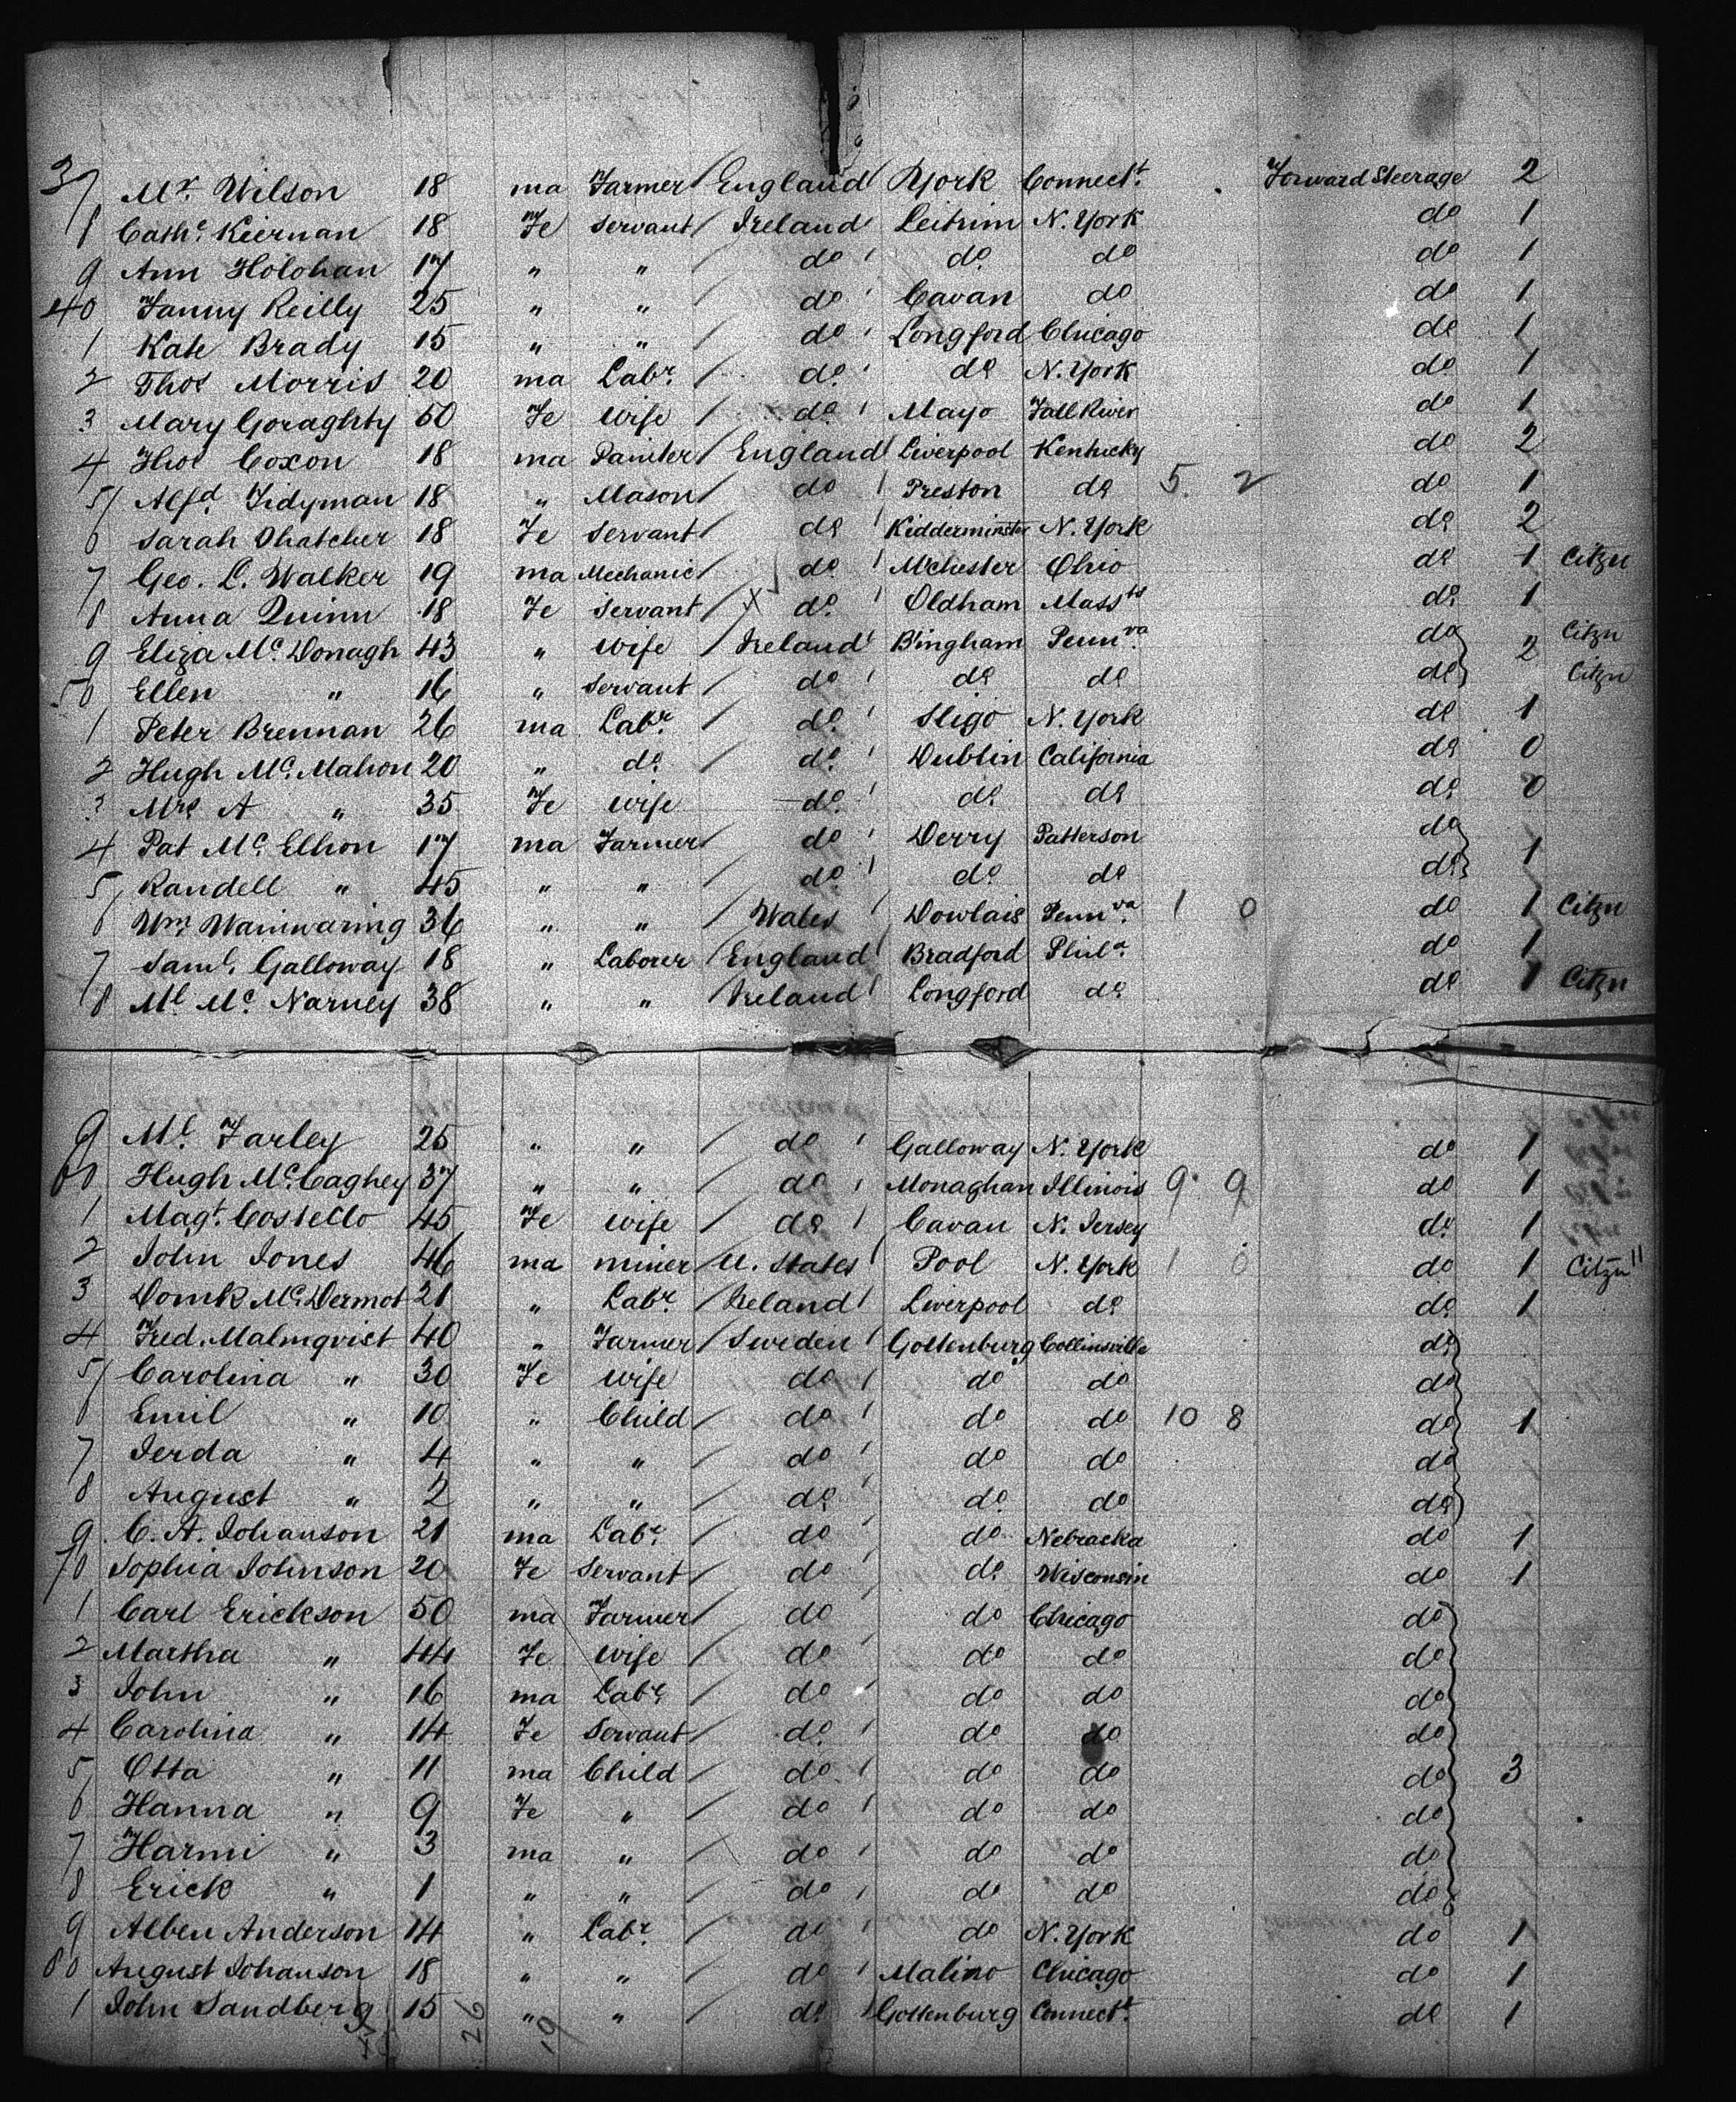 37 Mr. Wilson 18 ma Farmer / England York Connect. Forward Steerage 2
8 Cathe. Kiernan 18 Fe Servant / Ireland Leitrim N. York do 1
9 Ann Holohan 17 " " / do do do do 1
40 Fanny Reilly 25 " " / do Cavan do do 1
1 Kate Brady 15 " " / do Longford Chicago do 1
2 Thos Morris 20 ma Labr. / do do N. York do 1
3 Mary Goraghty 50 Fe Wife / do Mayo Fall River do 1
4 Thos Coxon 18 ma Painter / England Liverpool Kentucky do 2
5 Alfd. Tidyman 18 " Mason / do Preston do 5. 2 do 1
6 Sarah Thatcher 18 Fe Servant do Kidderminster N. York do 2
7 Geo. L. Walker 19 ma Mechanic / do Mchester Ohio do 1 Citzn
8 Anna Quinn 18 Fe Servant / X do Oldham Massts do 1
9 Eliza Mc. Donagh 43 " Wife / Ireland Bingham Pennva. do 2 Citzn
50 Ellen " 16 " Servant / do do do do Citzn
1 Peter Brennan 26 ma Labr. / do Sligo N. York do 1
2 Hugh Mc. Mahon 20 " do / do Dublin California do 0
3 Mrs A " 35 Fe Wife do do do do 0
4 Pat Mc. Elhon 17 ma Farmer do Derry Patterson do 1
5 Randell " 45 " " / do do do do
6 Wm. Wainwaring 36 " " / Wales Dowlais Pennva. 1 0 do 1 Citzn
7 Saml. Galloway 18 " Laborer / England Bradford Phila. do 1
8 Ml. Mc. Narney 38 " " / Ireland Longford do do 1 Citzn
9 Ml. Farley 25 " " / do Galloway N. York do 1
60 Hugh Mc. Caghey 37 " " / do Monaghan Illinois 9. 9 do 1
1 Magt. Costello 45 Fe Wife / do Cavan N. Jersey do 1
2 John Jones 46 ma miner / U. States Pool N. York 1 0 do 1 Citzn
3 Domk Mc. Dermot 21 " Labr. / Ireland Liverpool do do 1
4 Fred. Malmqvist 40 " Farmer / Sweden Gottenburg Collinsville do
5 Carolina " 30 Fe Wife do do do do
6 Emil " 10 " Child / do do do 10 8 do 1
7 Jerda " 4 " " / do do do do
8 August " 2 " " / do do do do
9 C. A. Johanson 21 ma Labr. / do do Nebracka do 1
70 Sophia Johnson 20 Fe Servant / do do Wisconsin do 1
1 Carl Erickson 50 ma Farmer / do do Chicago do
2 Martha " 44 Fe Wife / do do do do
3 John " 16 ma Labr / do do do do
4 Carolina " 14 Fe Servant / do do do do
5 Otta " 11 ma Child / do do do do 3
6 Hanna " 9 Fe " / do do do do
7 Harmi " 3 ma " / do do do do
8 Erick " 1 " " / do do do do
9 Alben Anderson 14 " Labr. / do do N. York do 1
80 August Johanson 18 " " / do Malino Chicago do 1
1 John Sandberg 15 " " do Gottenburg Connect. do 1
26 19